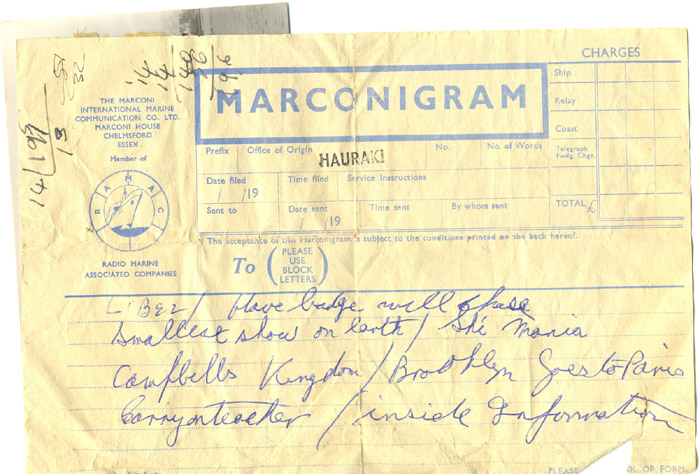 CHARGES
THE MARCONI
INTERNATIONAL MARINE
COMMUNICATION CO. LTD.
MARCONI HOUSE
CHELMSFORD
ESSEX
Member of
RAMAC
RADIO MARINE
ASSOCIATED COMPANIES
MARCONIGRAM
Ship
Relay
Coast
Telegraph
Fwdg. Chge.
TOTAL £
Prefix Office of Origin No. No. of Words
HAURAKI
Date filed Time filed Service Instructions
/19
Sent to Date sent Time sent By whom sent
/ /19
The acceptance of this Marconigram is subject to the conditions printed on the back hereof.
To (PLEASE
USE
BLOCK
LETTERS)
14/199
13
/ Have badge will chase
Smallest show on Earth / Ski Mania
Campbells Kingdom / Brooklyn Goes to Paris
Carry on teacher / inside Information
PLEASE
K OF FORM